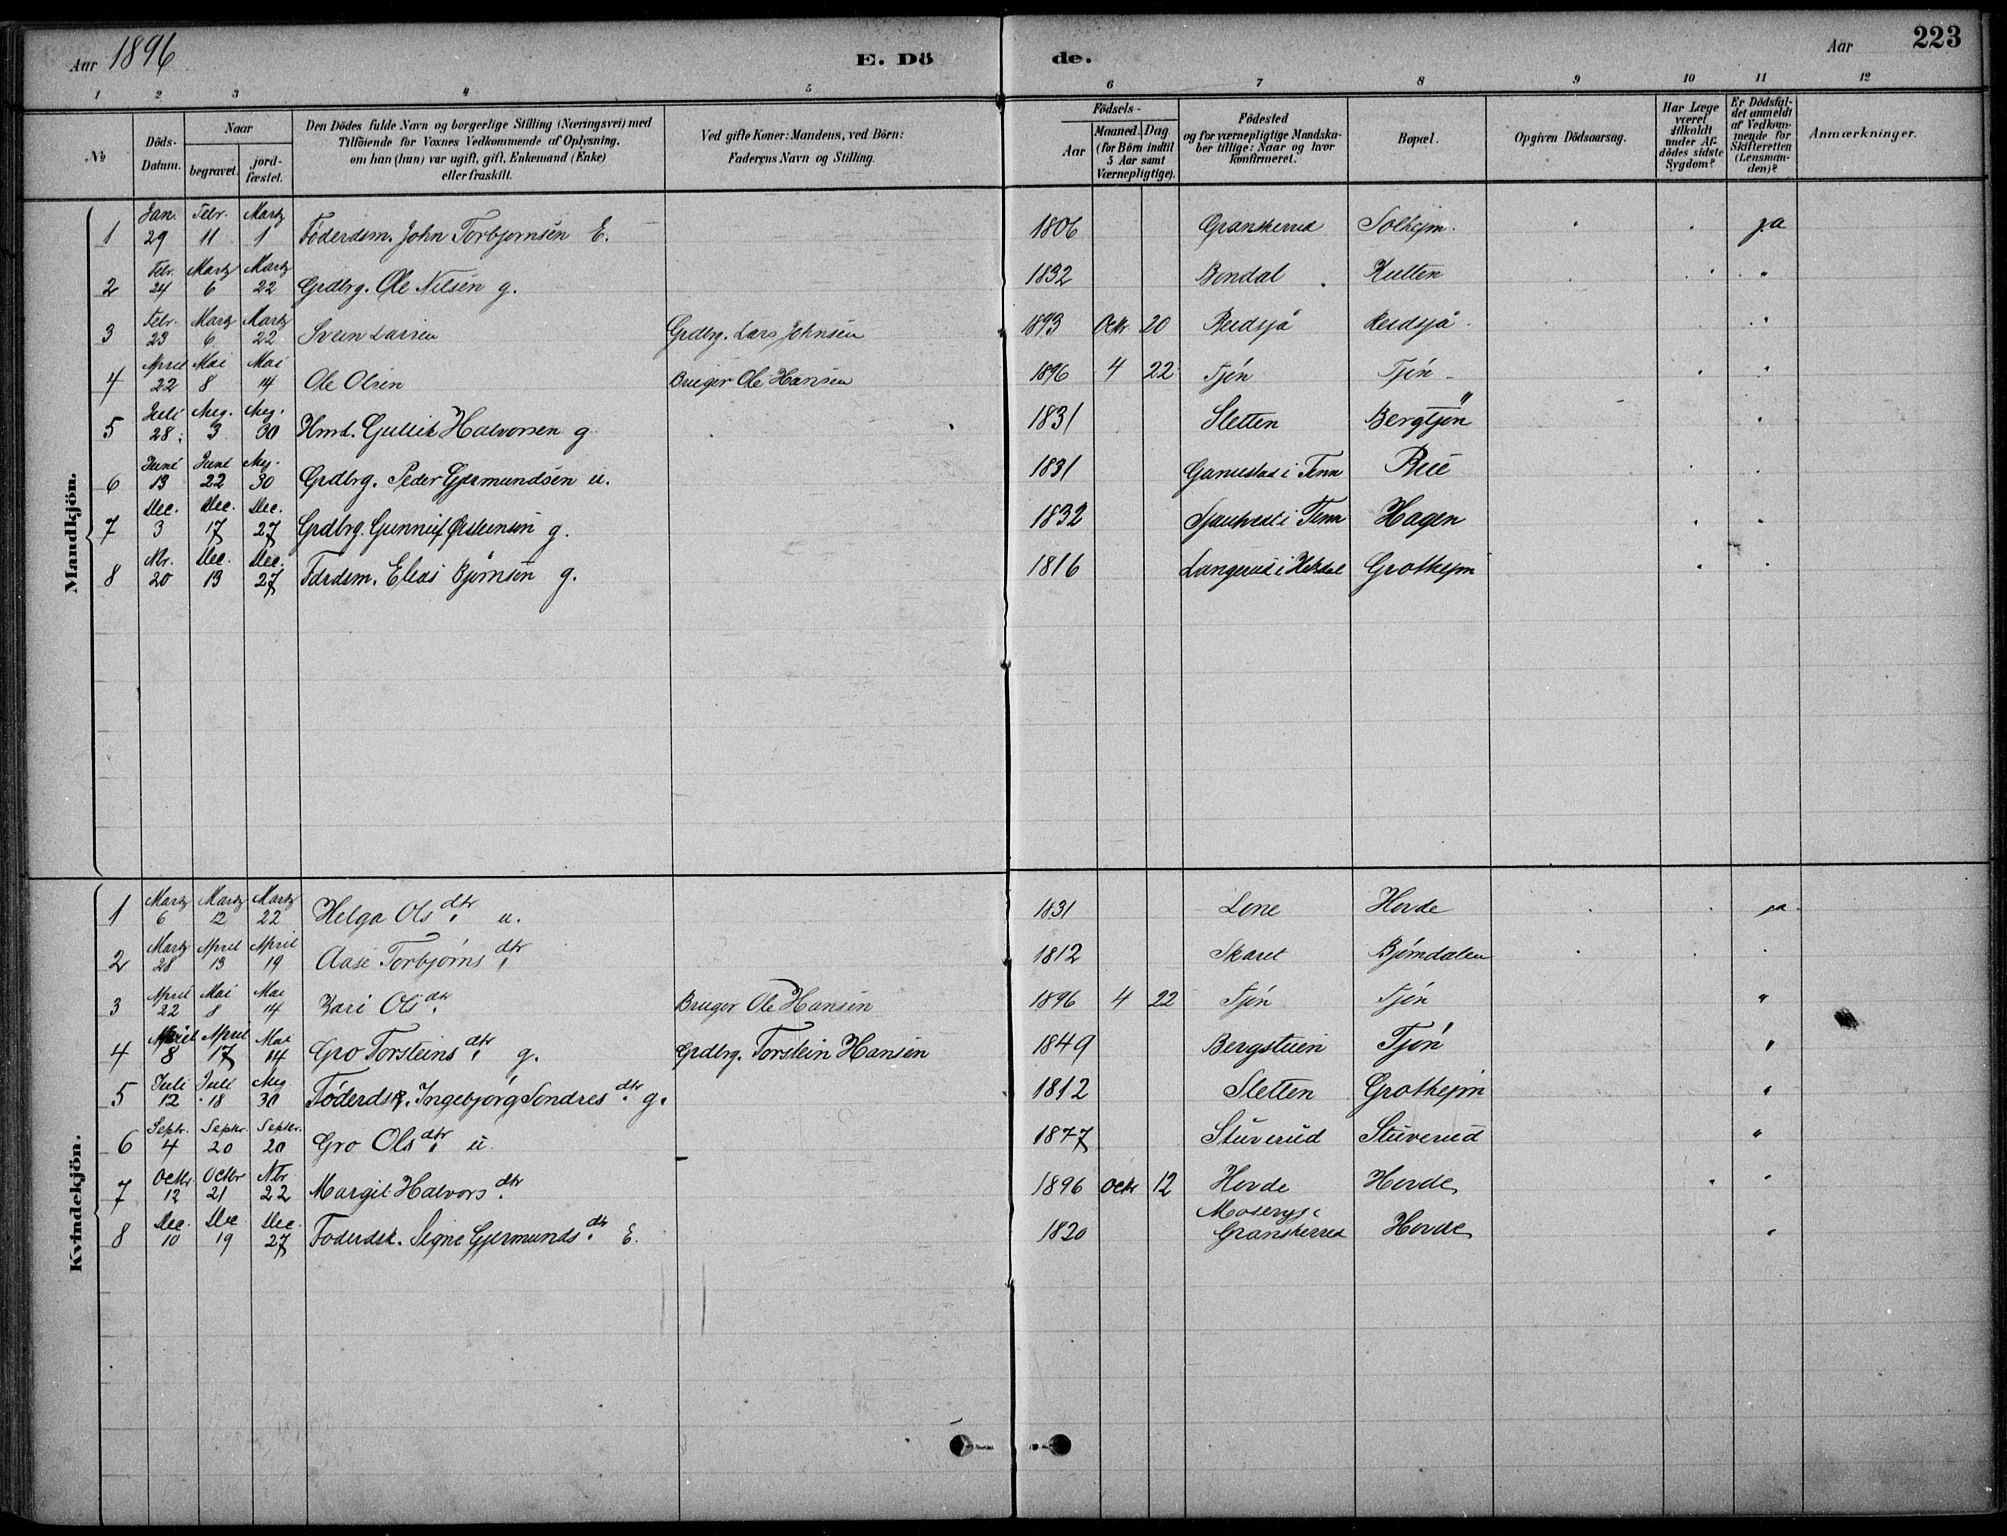 Aar 1896 E. Dö de. Aar 223
1 2 3 4 5 6 7 8 9 10 11 12
No
Döds-
Datum.
Naar
begravet.
jord-
fæstet.
Den Dödes fulde Navn og borgerlige Stilling (Næringsvei) med
Tilföiende for Voxnes Vedkommende af Oplysning,
om han (hun) var ugift, gift, Enkemand (Enke)
eller fraskilt.
Ved gifte Koner: Mandens, ved Börn:
Faderens Navn og Stilling.
Födsels-
Aar
Maaned. Dag.
(for Börn indtil
5 Aar samt
Værnepligtige).
Födested
og for værnepligtige Mandska-
ber tillige: Naar og hvor
konfirmeret.
Bopæl.
Opgiven Dödsaarsag.
Har Læge
været
tilkaldt
under Af-
dödes sidste
Sygdom?
Er Dödsfal-
det anmeldt
af Vedkom-
mende for
Skifteretten
(Lensman-
den)?
Anmærkninger.
Mandkjön.
Jan. Febr. Martz
1 29 11 1 Föderdsm. John Torbjornsen E. 1806 Granskerred Solhejm. ja
Febr. Martz Martz
2 24 6 22 Grdbrg. Ole Nilsen g. 1832 Bondal Kulten "
Febr. Martz Martz
3 23 6 22 Svein Larsen Grdbrg. Lars Johnsen 1893 Octr. 20 Reidsjå Reidsjå "
April Mai Mai
4 22 8 14 Ole Olsen Bruger Ole Hansen 1896 4 22 Tjön Tjön "
Juli Aug. Aug.
5 28 3 30 Hmd. Gullik Halvorsen g 1831 Sletten Bergtjön "
Juni Juni Aug.
6 13 22 30 Grdbrg. Peder Gjermundsen u. 1831 i Tinn Rue
Dec. Dec. Dec.
7 3 17 27 Grdbrg. Gunnuf Østensen g. 1832 i Tinn Hagen
Nbr. Dec. Dec.
8 20 13 27 Fdrdsm. Eleas Bjørnsen g. 1816 Langerud i Grothejm
Kvindekjön.
Martz Martz Martz
1 6 12 22 Helga Olsdtr. u. 1831 Lone Hovde ja
Martz April April
2 28 13 19 Aase Torbjørnsdtr. 1812 Skaret Bjørndalen
April Mai Mai
3 22 8 14 Kari Olsdtr. Bruger Ole Hansen 1896 4 22 Tjön Tjön "
April April Mai
4 8 17 14 Gro Torsteinsdtr. g. Grdbrg. Torstein Hansen 1849 Bergstuen Tjön "
Juli Juli Aug
5 12 18 30 Föderdsk. Ingebjörg Sondresdtr. g. 1812 Sletten Grothejm "
Septr. Septr. Septr.
6 4 20 20 Gro Olsdtr. u. 1877 Stuverud Stuverud "
Octr Octbr Nbr
7 12 21 22 Margit Halvorsdtr. 1896 Octr 12 Hovde Hovde "
Dec. Dec Dec.
8 10 19 27 Foderdsk. Signe Gjermundsdtr. E. 1820 Granskerred Hovde "